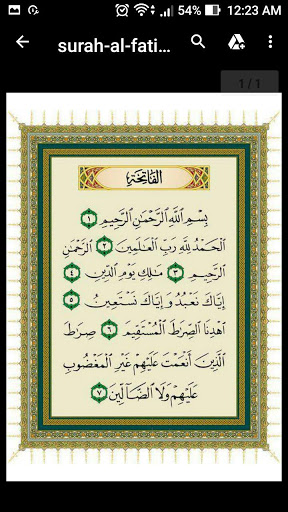 54% 12:23 AM
surah-al-fati...
1 / 1
الفاتحة
بِسْمِ اللَّهِ الرَّحْمَٰنِ الرَّحِيمِ ١
الْحَمْدُ لِلَّهِ رَبِّ الْعَالَمِينَ ٢ الرَّحْمَٰنِ
الرَّحِيمِ ٣ مَالِكِ يَوْمِ الدِّينِ ٤
إِيَّاكَ نَعْبُدُ وَإِيَّاكَ نَسْتَعِينُ ٥
اهْدِنَا الصِّرَاطَ الْمُسْتَقِيمَ ٦ صِرَاطَ
الَّذِينَ أَنْعَمْتَ عَلَيْهِمْ غَيْرِ الْمَغْضُوبِ
عَلَيْهِمْ وَلَا الضَّالِّينَ ٧